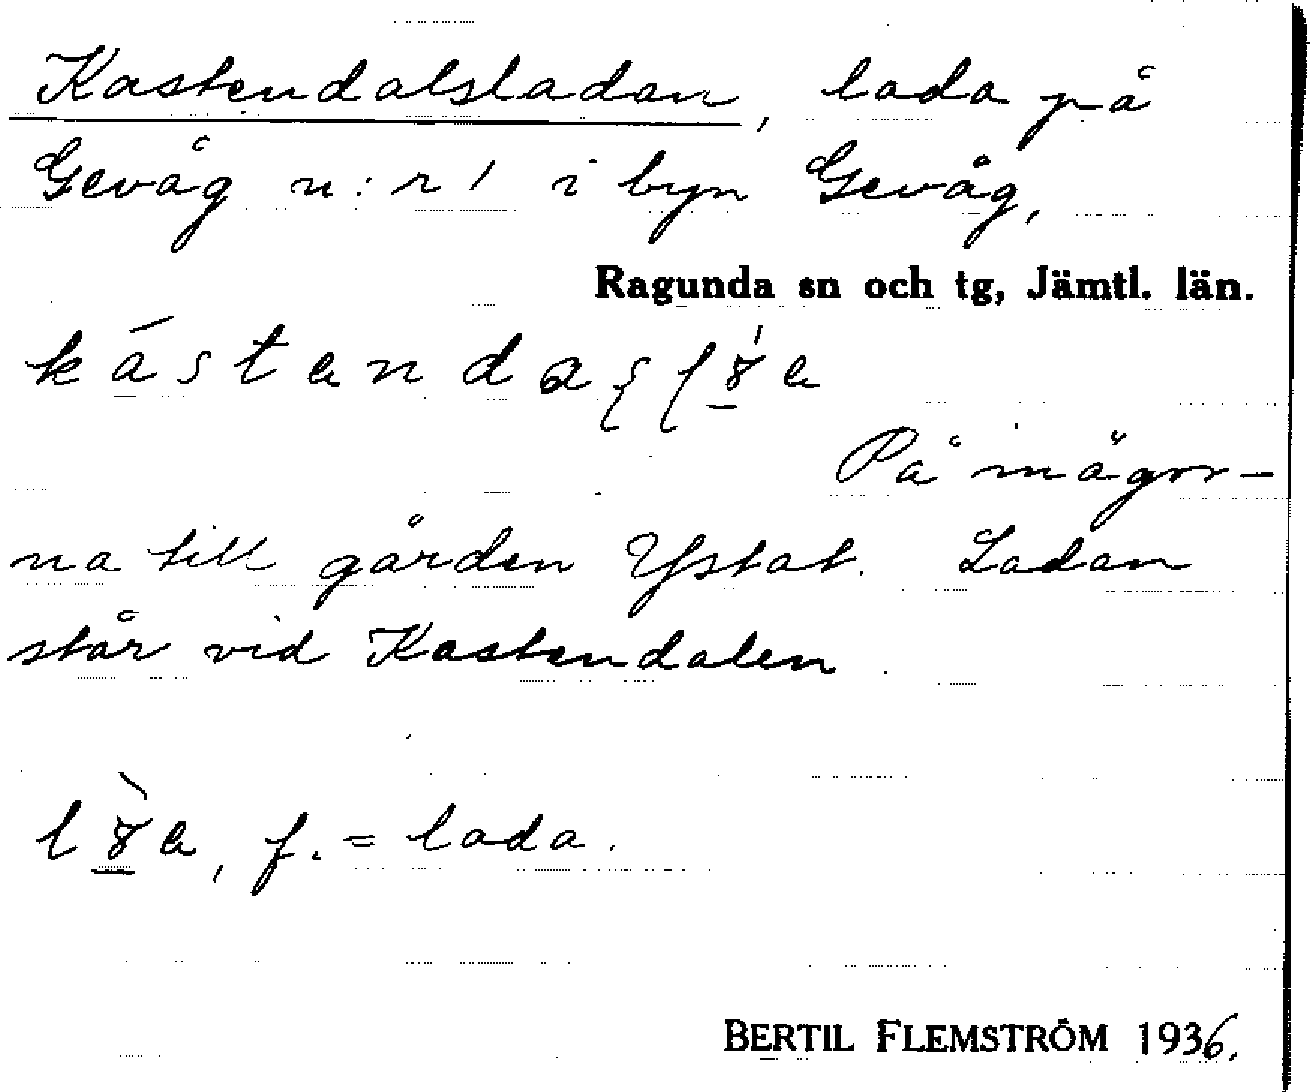 Kastendalsladan, lada på
Gevåg n:r 1 i byn Gevåg,
Ragunda sn och tg, Jämtl. län.
På ingor-
na till gården Ystat. Ladan
står vid Kastendalen.
f. = lada.
BERTIL FLEMSTRÖM 1936.